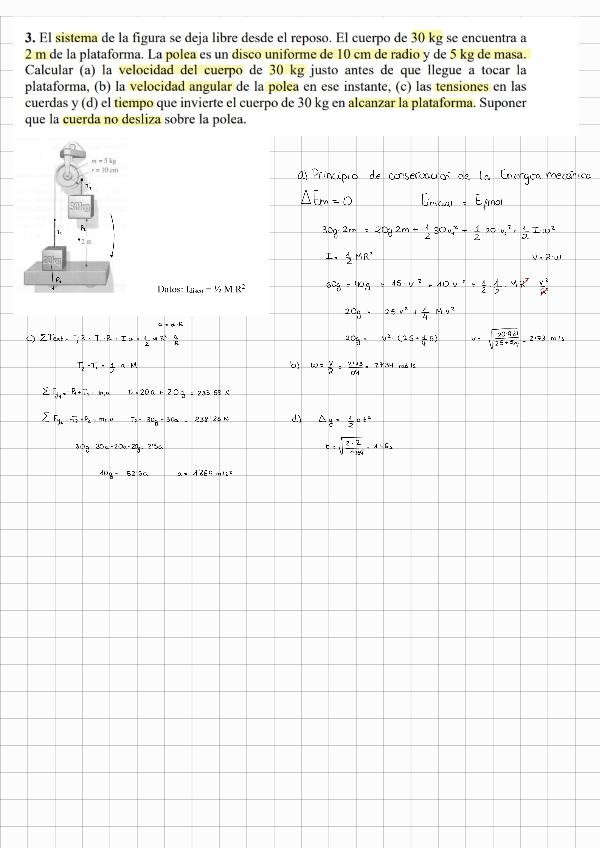 3. El sistema de la figura se deja libre desde el reposo. El cuerpo de 30 kg se encuentra a
2 m de la plataforma. La polea es un disco uniforme de 10 cm de radio y de 5 kg de masa.
Calcular (a) la velocidad del cuerpo de 30 kg justo antes de que llegue a tocar la
plataforma, (b) la velocidad angular de la polea en ese instante, (c) las tensiones en las
cuerdas y (d) el tiempo que invierte el cuerpo de 30 kg en alcanzar la plataforma. Suponer
que la cuerda no desliza sobre la polea.
m = 5 kg
r = 10 cm
30kg
2 m
20kg
Datos: I_disco = ½ M R²
a) Principio de conservación de la Energía mecánica
ΔEm = 0 Einicial = Efinal
30g·2m = 20g·2m + 1/2 30 v² + 1/2 20 v² + 1/2 I w²
I = 1/2 MR² v = R·w
60g - 40g = 15 v² + 10 v² + 1/2 · 1/2 · MR² v²/R²
20g = 25 v² + 1/4 M v²
20g = v² (25 + 1/4 5)
b) w = v/R =
c) ΣText = T₂R - T₁R = I α = 1/2 M R² a/R
T₂ - T₁ = 1/2 a M
30g - 30a - 20a - 20g = 2'5a
10g = 52'5a
d) Δy = 1/2 a t²